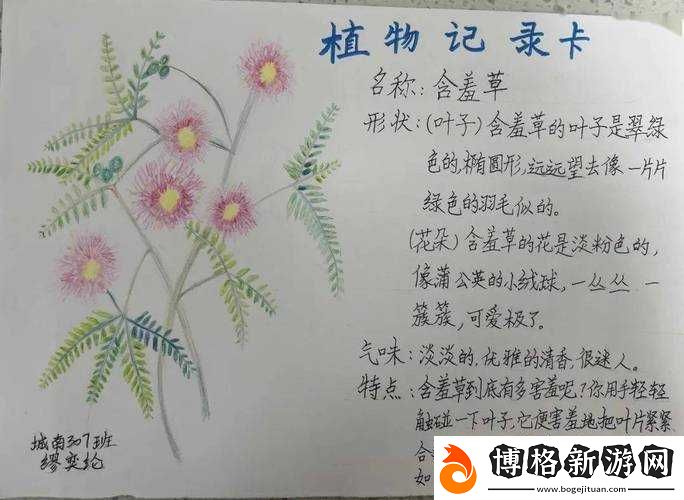 植物记录卡
名称：含羞草
形状：(叶子)含羞草的叶子是翠绿
色的,椭圆形,远远望去像一片片
绿色的羽毛似的。
(花朵)含羞草的花是淡粉色的，
像蒲公英的小绒球，一丛丛一
簇簇，可爱极了。
气味：淡淡的，优雅的清香，很迷人。
特点：含羞草到底有多害羞呢？你用手轻轻
触碰一下叶子，它便害羞地把叶片紧紧
合
如
城南307班
缪奕纶
博格新游网
www.bogejituan.com